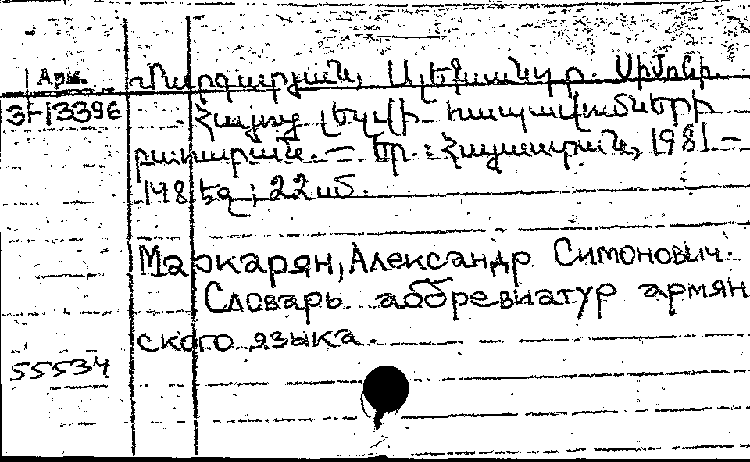 Арм.
Մարգարյան, Ալեքսանդր Սիմոնի.
3-13396
Հայոց լեզվի հապավումների
բառարան. — Եր.: Հայաստան, 1981 —
198 էջ; 22 սմ.
Маркарян, Александр Симонович.
Словарь аббревиатур армян
ского языка.
55534